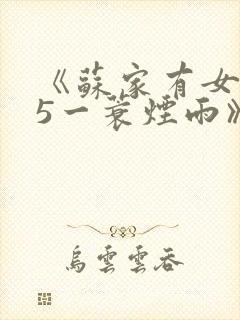 《蘇家有女
5一蓑煙雨》
烏雲雲吞